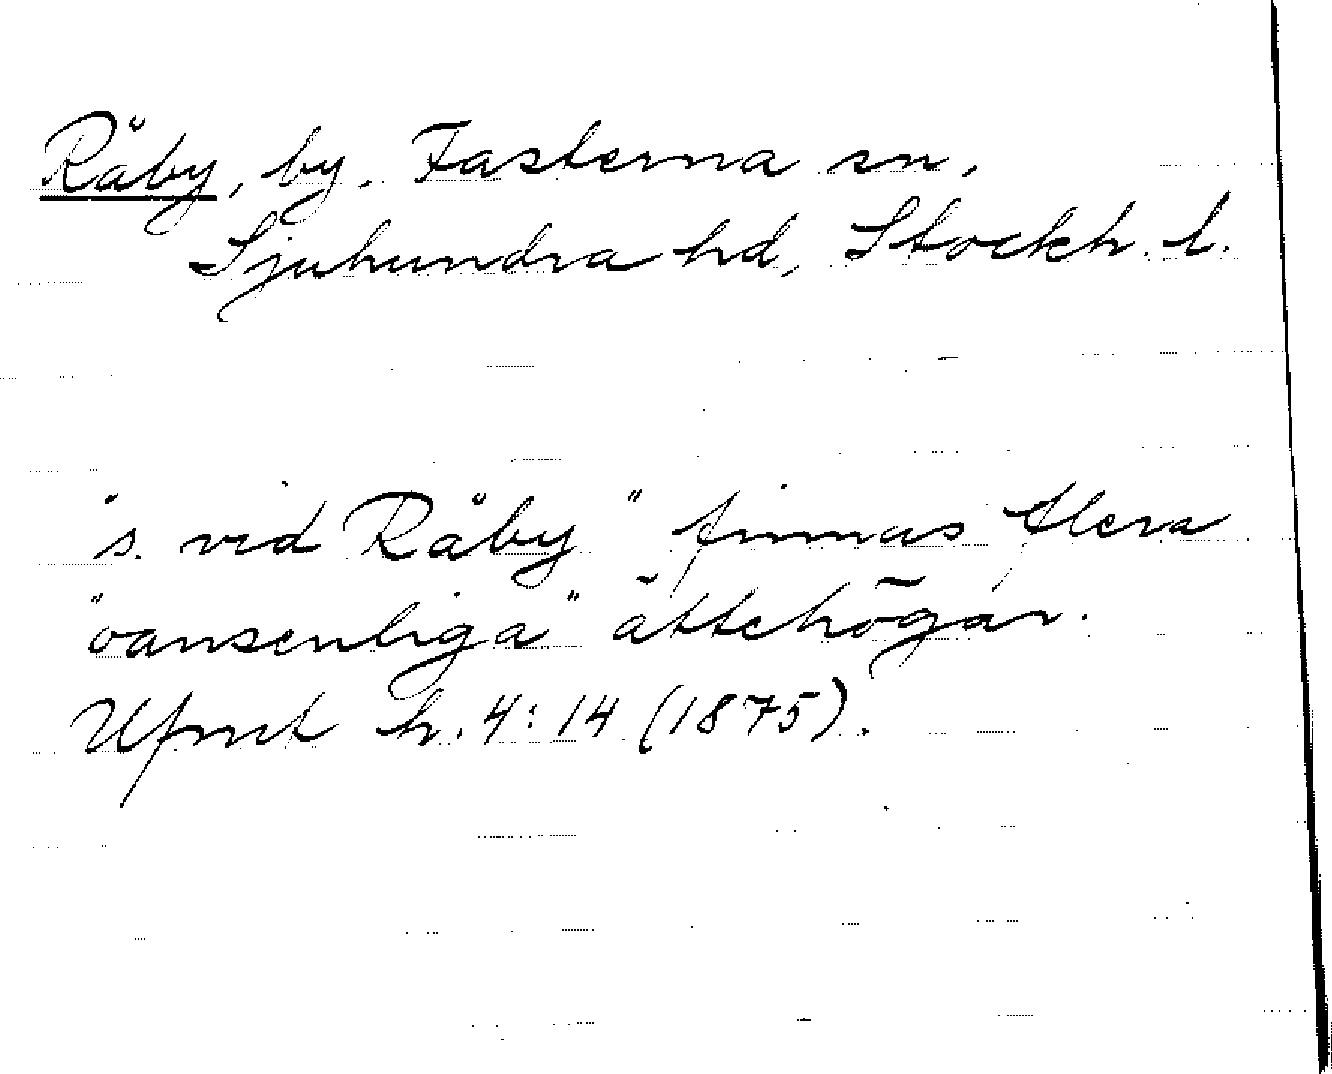 Råby, by. Fasterna sn,
Sjuhundra hd, Stockh. l.
"s. vid Råby" finnas flera
"oansenliga" ättehögar.
Ufmt h. 4:14 (1875).